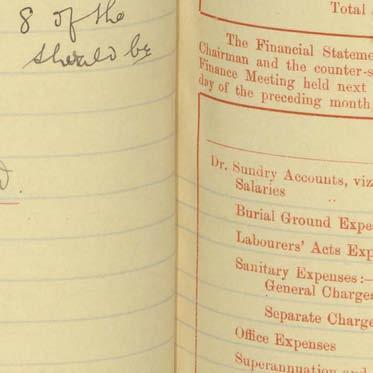 8 of the
should be
Total
The Financial Stateme
Chairman and the counter-s
Finance Meeting held next
day of the preceding month
Dr. Sundry Accounts, viz
Salaries
Burial Ground Expe
Labourers' Acts Exp
Sanitary Expenses:—
General Charges
Separate Charge
Office Expenses
Superannuation and